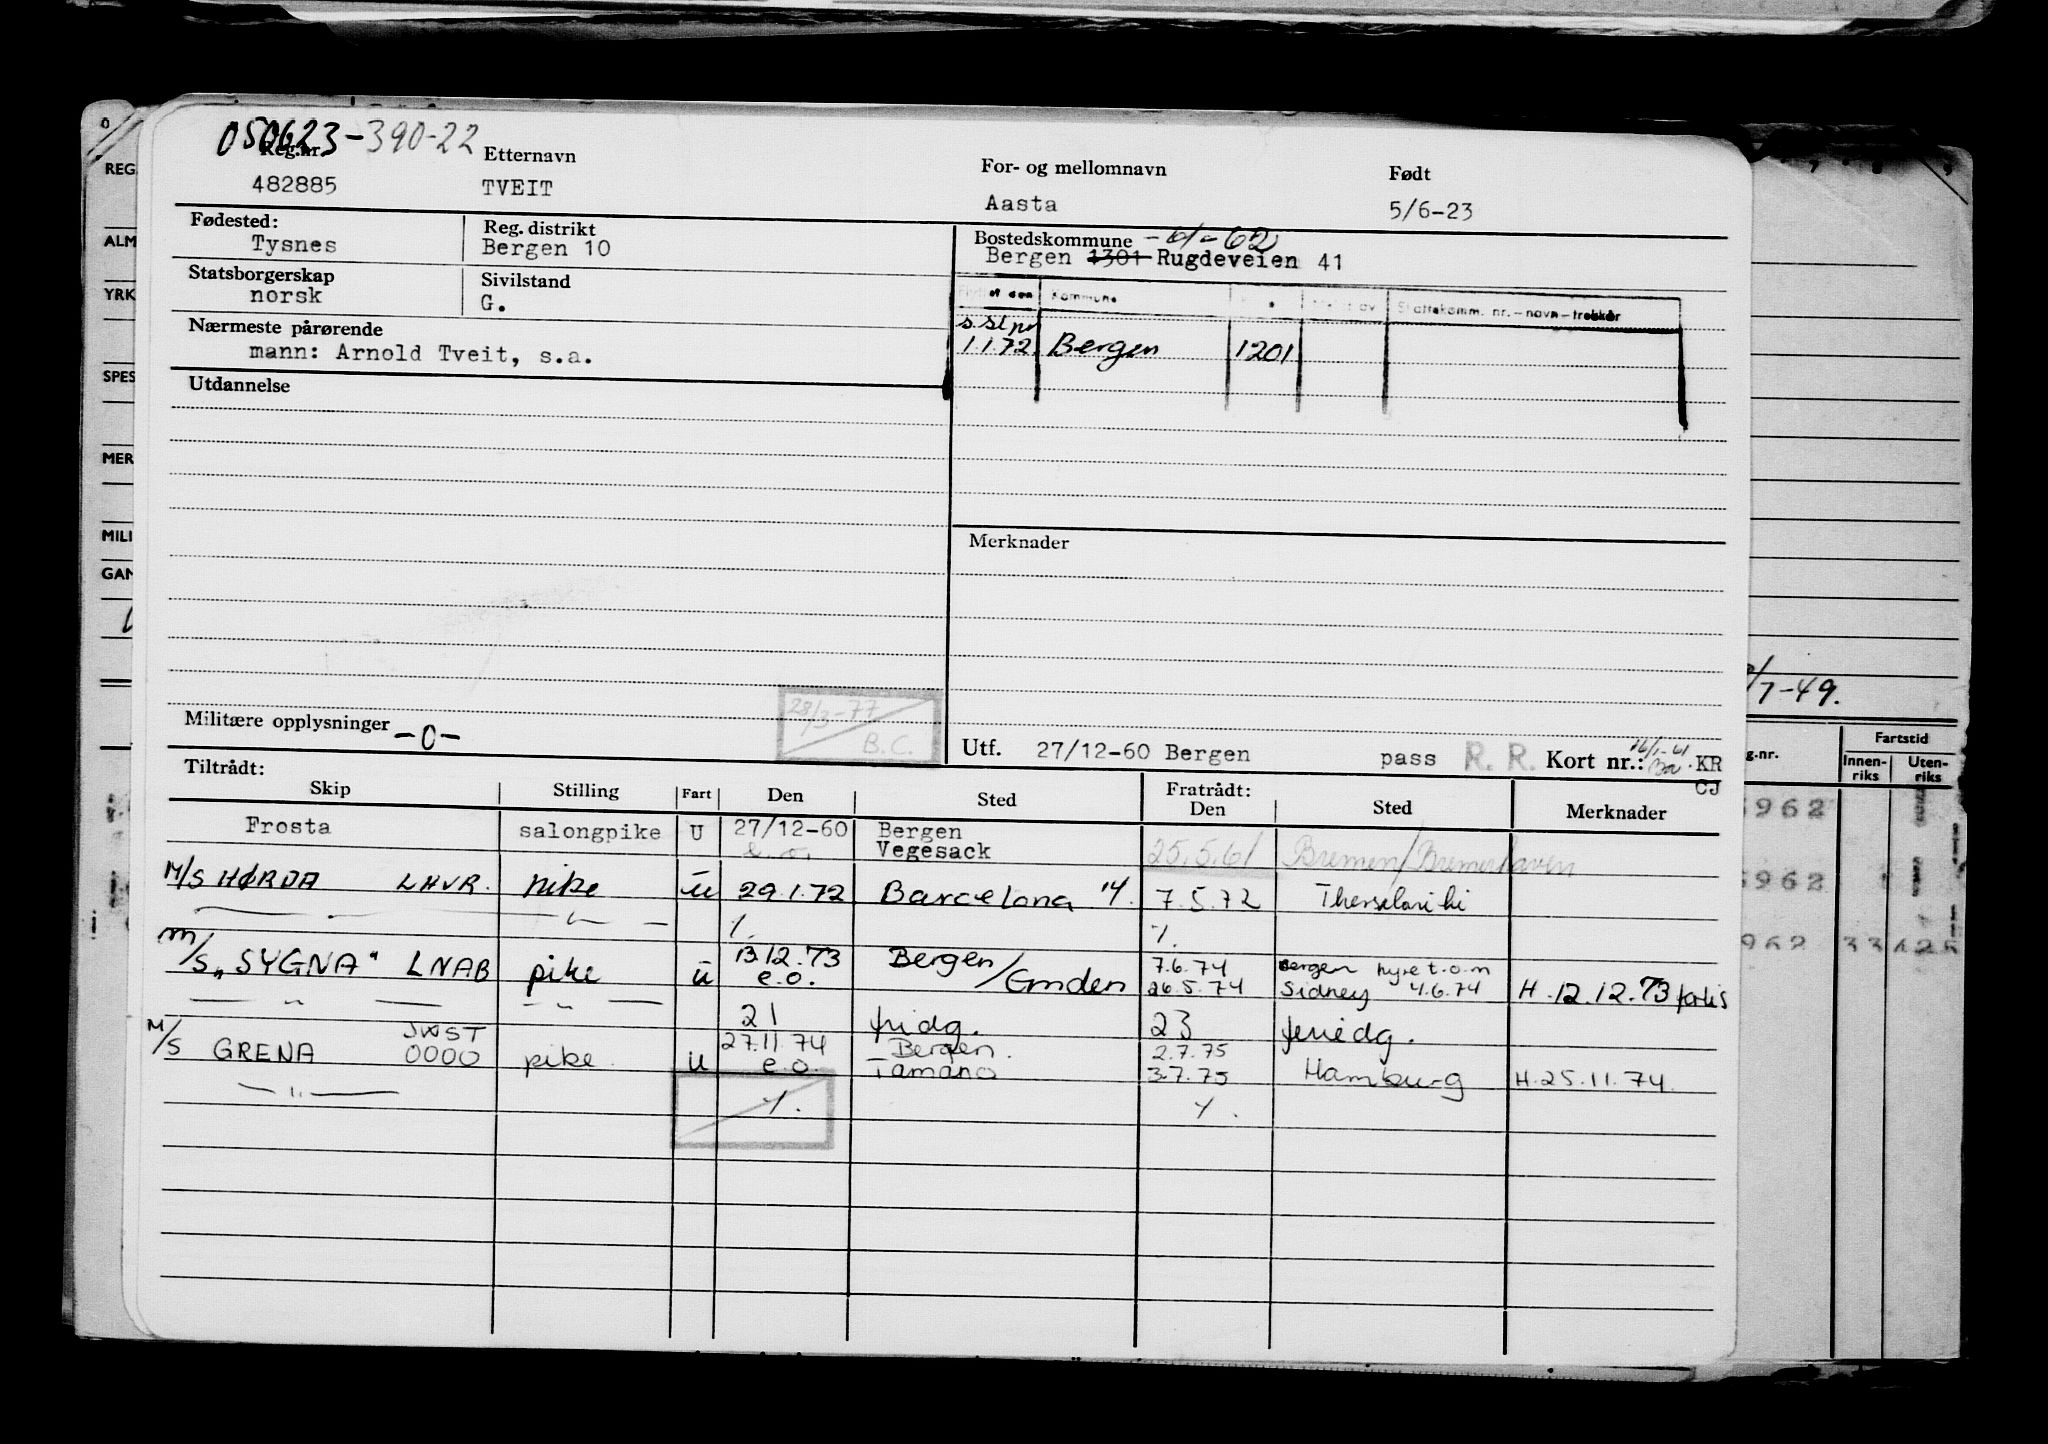 050623-390-22
Reg.nr. Etternavn For- og mellomnavn Født
482885 TVEIT Aasta 5/6-23
Fødested: Reg. distrikt Bostedskommune -61-62
Tysnes Bergen 10 Bergen 1301 Rugdeveien 41
Statsborgerskap Sivilstand
norsk G.
den Kommune Skattekomm. nr.-navn-trekkår
Nærmeste pårørende
mann: Arnold Tveit, s.a.
1.1.72 Bergen 1201
Utdannelse
Merknader
Militære opplysninger -0-
28/3-77
B.C.
Utf. 27/12-60 Bergen pass R. R. Kort nr.: 16/1-61 KR
CJ
Tiltrådt: Fratrådt:
Skip Stilling Fart Den Sted Den Sted Merknader
Frosta salongpike U 27/12-60 Bergen
e.o. Vegesack 25.5.61 Bremen/Bremerhaven
M/S HØRDA LHVR. pike u 29.1.72 Barcelona 14. 7.5.72
— " — /. /.
M/S "SYGNA" LNAB pike u 13.12.73 Bergen 7.6.74 Bergen hyre t.o.m
e.o. /Emden 26.5.74 Sidney 4.6.74 H.12.12.73
— " — — " — 21 fridg. 23 feriedg.
M/S GRENA JWST pike u 27.11.74 Bergen. 2.7.75
0000 e.o. Tamano 3.7.75 Hamburg H.25.11.74.
— " — /. /.
REG.
ALM
YRK
SPES
MER
MILI
GAN
/7-49.
g.nr. Fartstid
Innen-
riks
Uten-
riks
962
962
962 33 625